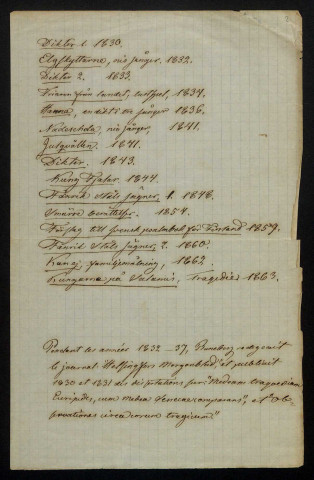 Dikter 1. 1830.
Elgskyttarne, nio sånger. 1832.
Dikter 2. 1833.
Friaren från landet, lustspel, 1834.
Hanna, en dikt i tre sånger 1836.
Nadeschda, nio sånger, 1841.
Julqvällen. 1841.
Dikter. 1843.
Kung Fjalar. 1844.
Fänrik Ståls Sägner. 1. 1848.
Smärre berättelser. 1854.
Förslag till svensk psalmbok för Finland 1857.
Fänrik Ståls Sägner. 2. 1860.
Kan ej, familjemålning, 1862.
Kungarne på Salamis, Tragedie, 1863.
Pendant les années 1832–37, Runeberg redigeait
le journal Helsingfors Morgonblad, et publiait
1830 et 1831 des disputations sur: "Medeam tragoediam
Euripidis, cum Medea Senecae comparans", et "Ob-
servationes circa chorum tragicum"